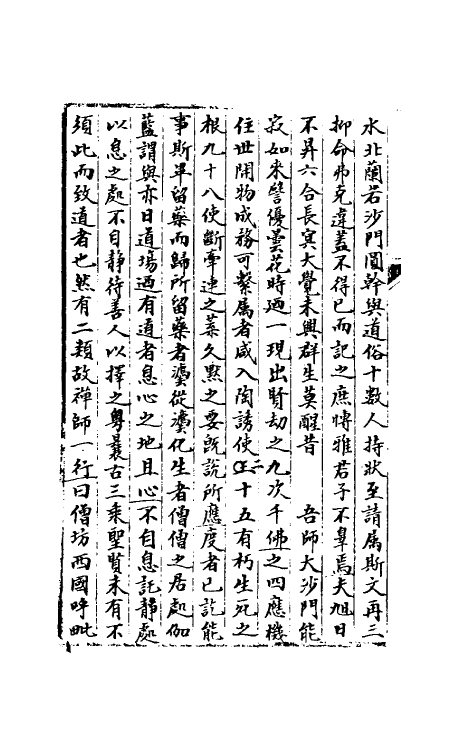 水北蘭若沙門圓幹與道俗十數人持狀至請属斯文再三
抑命弗克違蓋不得已而記之庶愽雅君子不辠焉夫旭日
不昇六合長冥大覺未興群生莫醒昔　吾師大沙門能
寂如来譬優曇花時迺一現出賢劫之九次千佛之四應機
住世開物成務可繫属者咸入陶誘使二十五有朽生死之
根九十八使斷牽連之業久黙之要旣說所應度者已訖能
事斯畢留藥而歸所留藥者㙮從㙮化生者僧僧之居處伽
藍謂與亦曰道場迺有道者息心之地且心不自息託靜處
以息之處不自靜待善人以擇之粤曩古三乘聖賢未有不
須此而致道者也然有二類故禅師一行曰僧坊西國呼毗